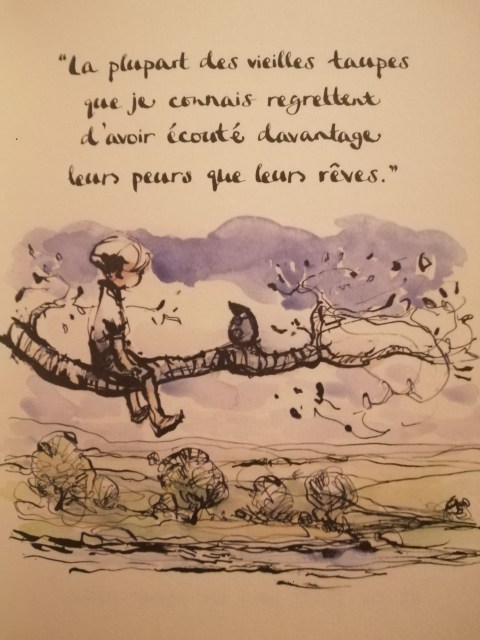 "La plupart des vieilles taupes
que je connais regrettent
d'avoir écouté davantage
leurs peurs que leurs rêves."